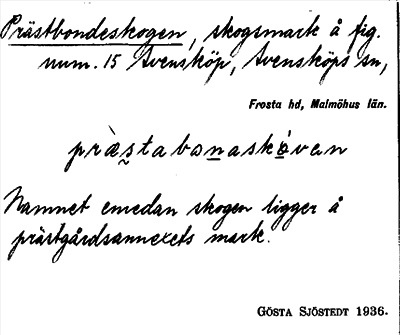 Prästbondeskogen, skogsmark å fig.
num. 15 Svensköp, Svensköps sn,
Frosta hd, Malmöhus län.
præ̀s̬tabonaskȯ́van
Namnet emedan skogen ligger å
prästgårdsannexets mark.
GÖSTA SJÖSTEDT 1936.